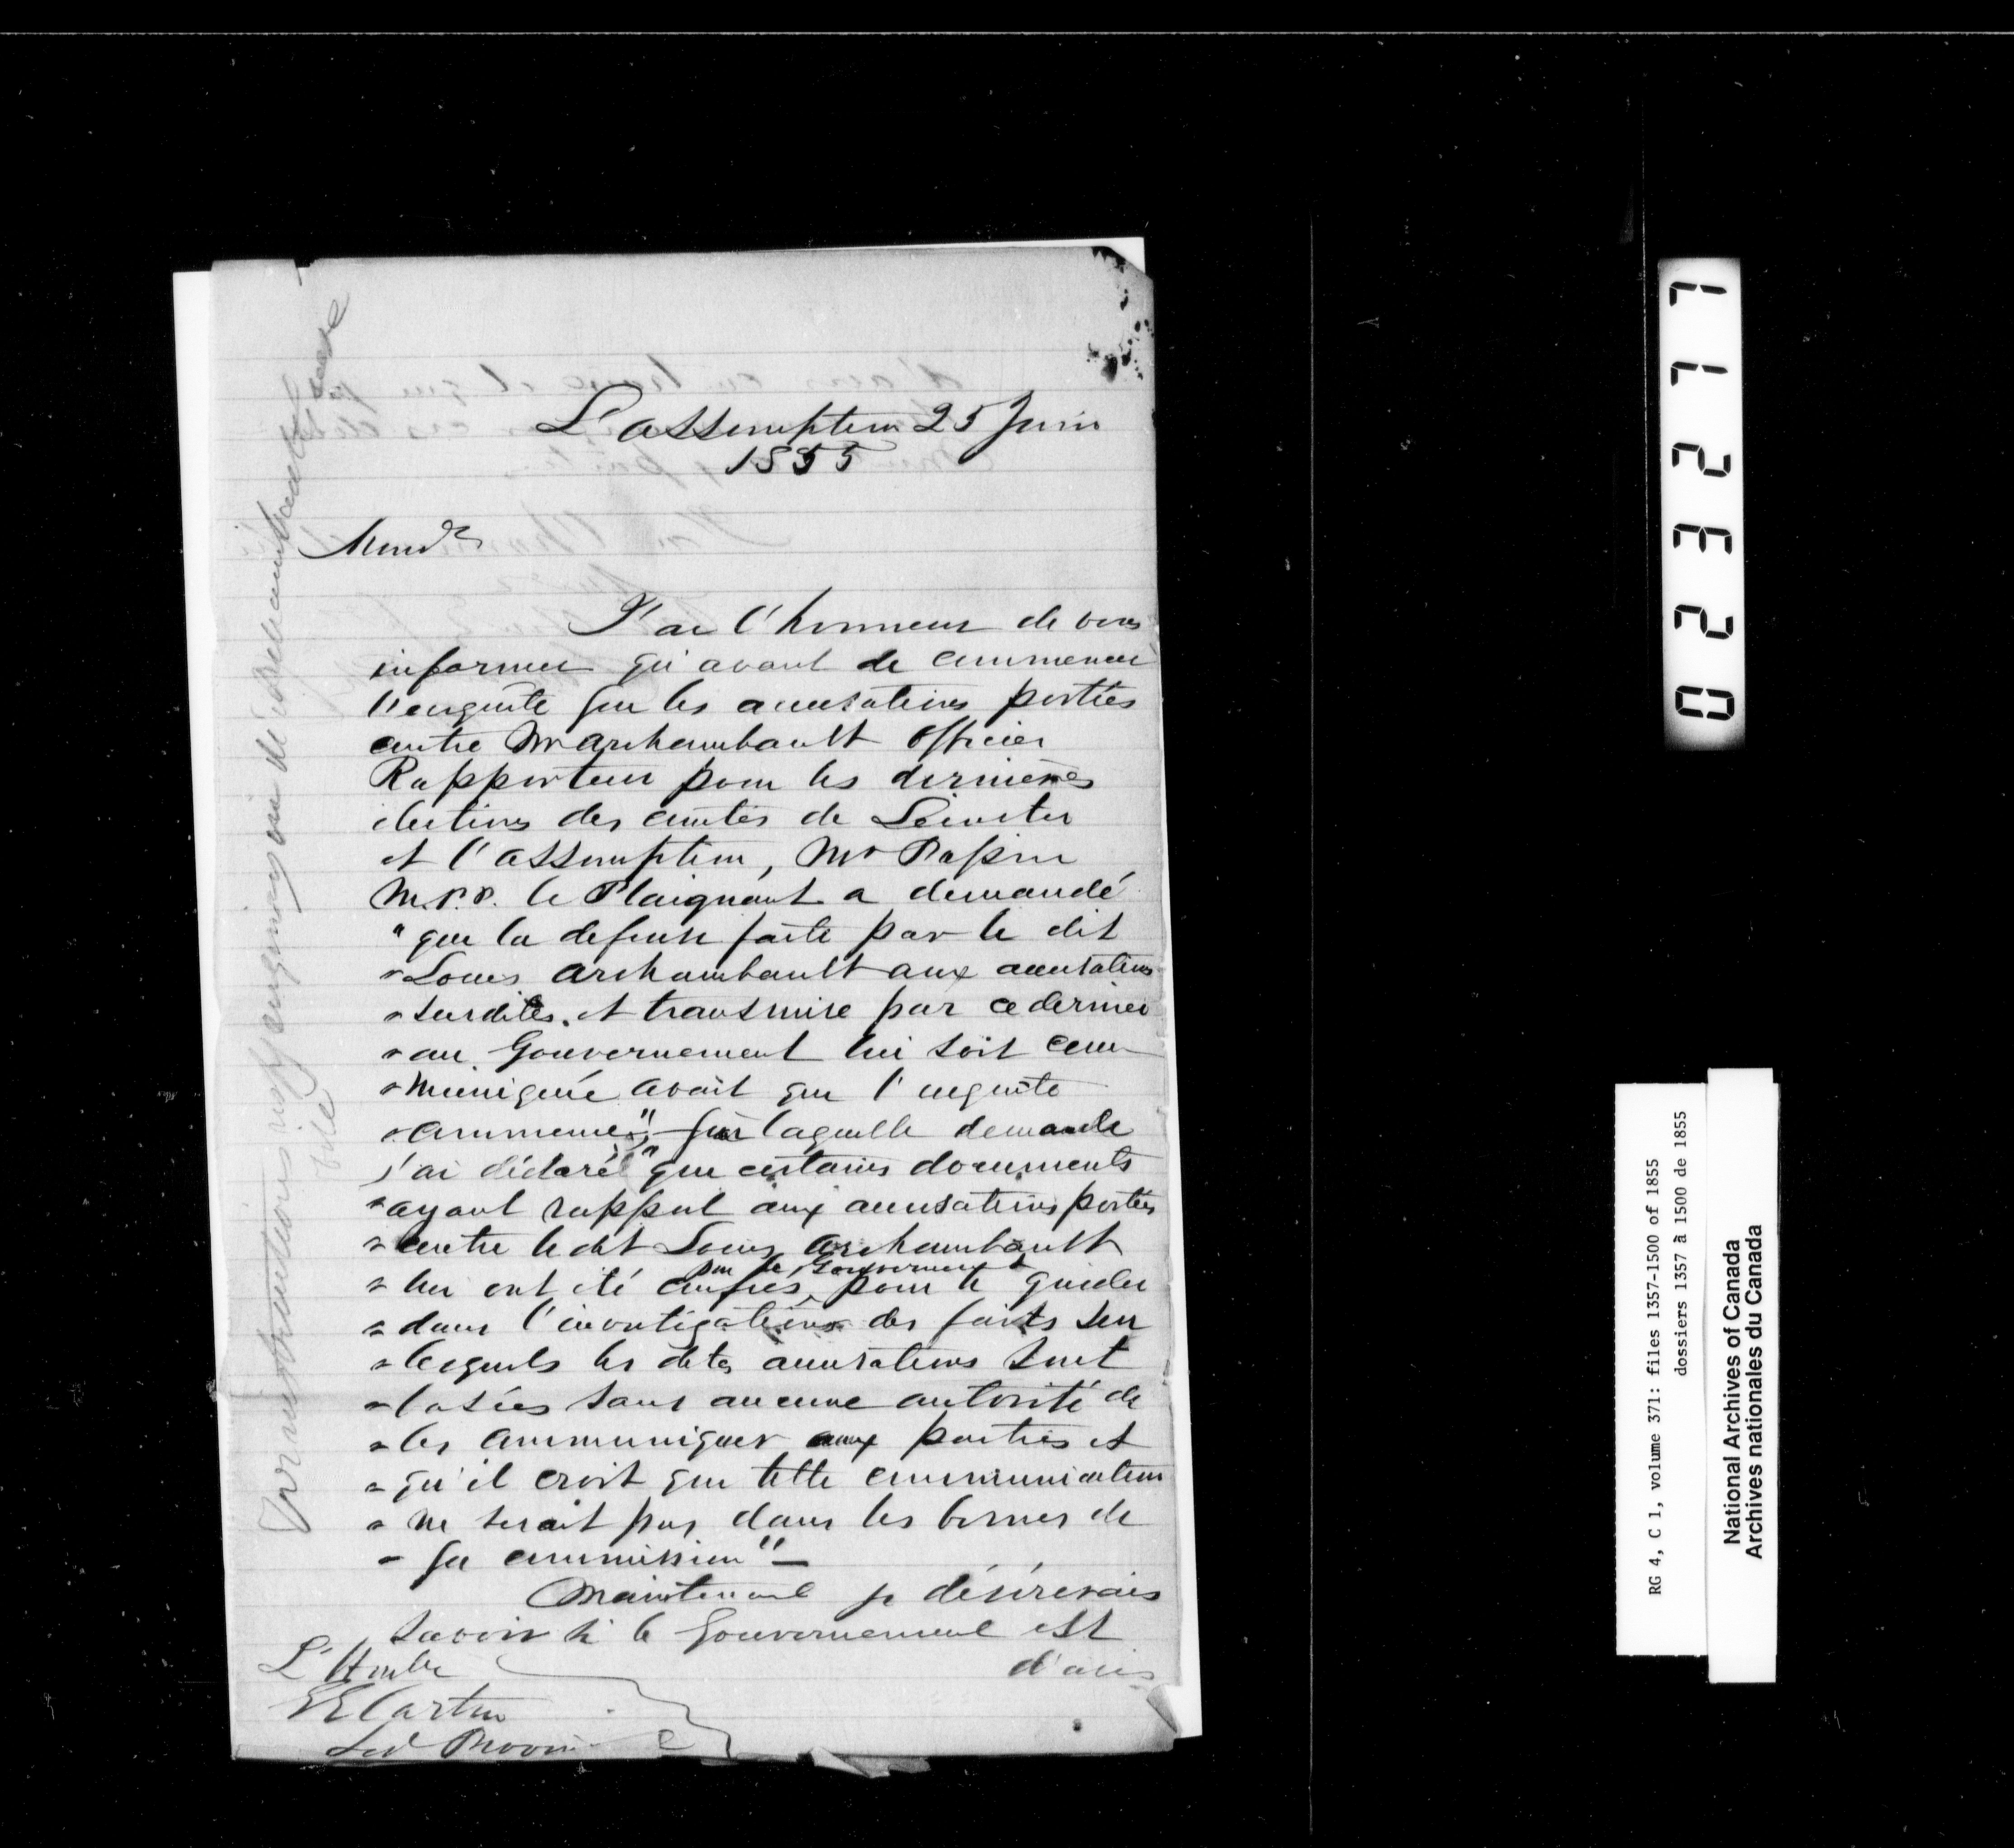 L'assomption 25 Juin
1855
Monsr
J'ai l'honneur de vous
informer qu'avant de commencer
l'enquête sur les accusations portées
contre Mr Archambault Officier
Rapporteur pour les dernières
élections des comtés de Leinster
et l'assomption, Mr Papin
M.P.P. le Plaignant a demandé
"que la defense faite par le dit
"Louis Archambault aux accusations
"susdites. et transmise par ce dernier
"au Gouvernement lui soit com-
"muniquée avant que l'enquête
"commence", sur laquelle demande
j'ai déclaré "que certains documents
"ayant rapport aux accusations portées
"contre le dit Louis Archambault
par le Gouvernement
"lui ont été confiés pour le guider
"dans l'investigation des faits sur
"lesquels les dites accusations sont
"basées sans aucune autorité de
"les communiquer aux parties et
"qu'il croit que telle communication
"ne serait pas dans les bornes de
"sa commission" –
Maintenant je désirerais
savoir si le Gouvernement est
d'avis
L'Honble
GE Cartier
Sec Provin
023277
RG 4, C 1, volume 371: files 1357-1500 of 1855
dossiers 1357 à 1500 de 1855
National Archives of Canada
Archives nationales du Canada